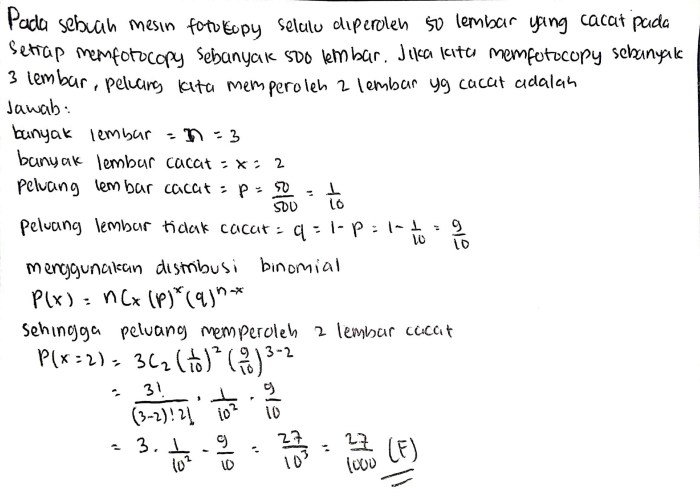 Pada sebuah mesin fotokopy selalu diperoleh 50 lembar yang cacat pada
Setiap memfotocopy sebanyak 500 lembar. Jika kita memfotocopy sebanyak
3 lembar, peluang kita memperoleh 2 lembar yg cacat adalah
Jawab:
banyak lembar = n = 3
banyak lembar cacat = x = 2
Peluang lembar cacat = p = 50/500 = 1/10
Peluang lembar tidak cacat = q = 1 - p = 1 - 1/10 = 9/10
menggunakan distribusi binomial
P(x) = nCx (p)^x (q)^n-x
Sehingga peluang memperoleh 2 lembar cacat
P(x=2) = 3C2 (1/10)^2 (9/10)^3-2
= 3!/(3-2)!2! . 1/10^2 . 9/10
= 3 . 1/10^2 . 9/10 = 27/10^3 = 27/1000 (F)